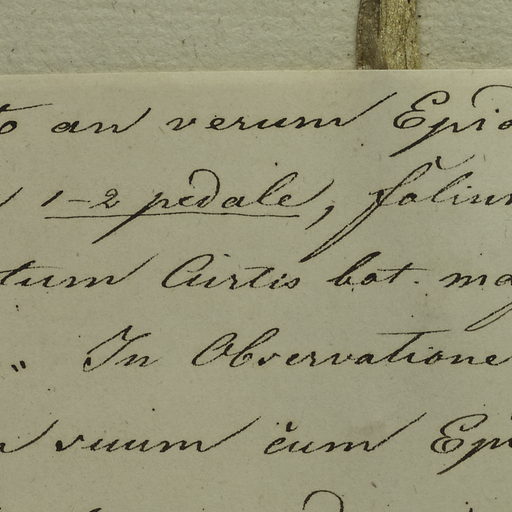 an verum Epid
1-2 pedale, folium
tum Curtis bot. mag
„ In Observatione
suum cum Epi